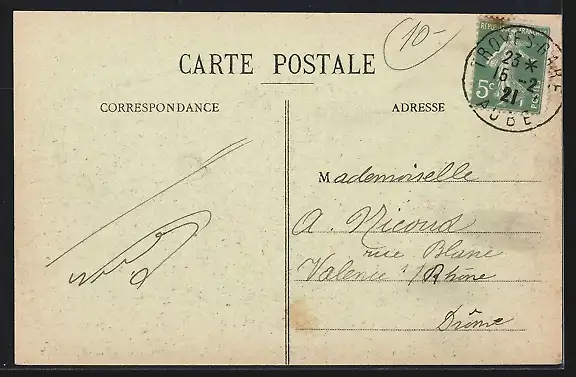 10-
RÉPUBLIQUE FRANÇAISE
5c
POSTES
TROYES-GARE
23 *
15 -2
21
AUBE
CARTE POSTALE
CORRESPONDANCE
ADRESSE
Mademoiselle
A. Nicoud
rue Blanc
Valence s/Rhône
Drôme